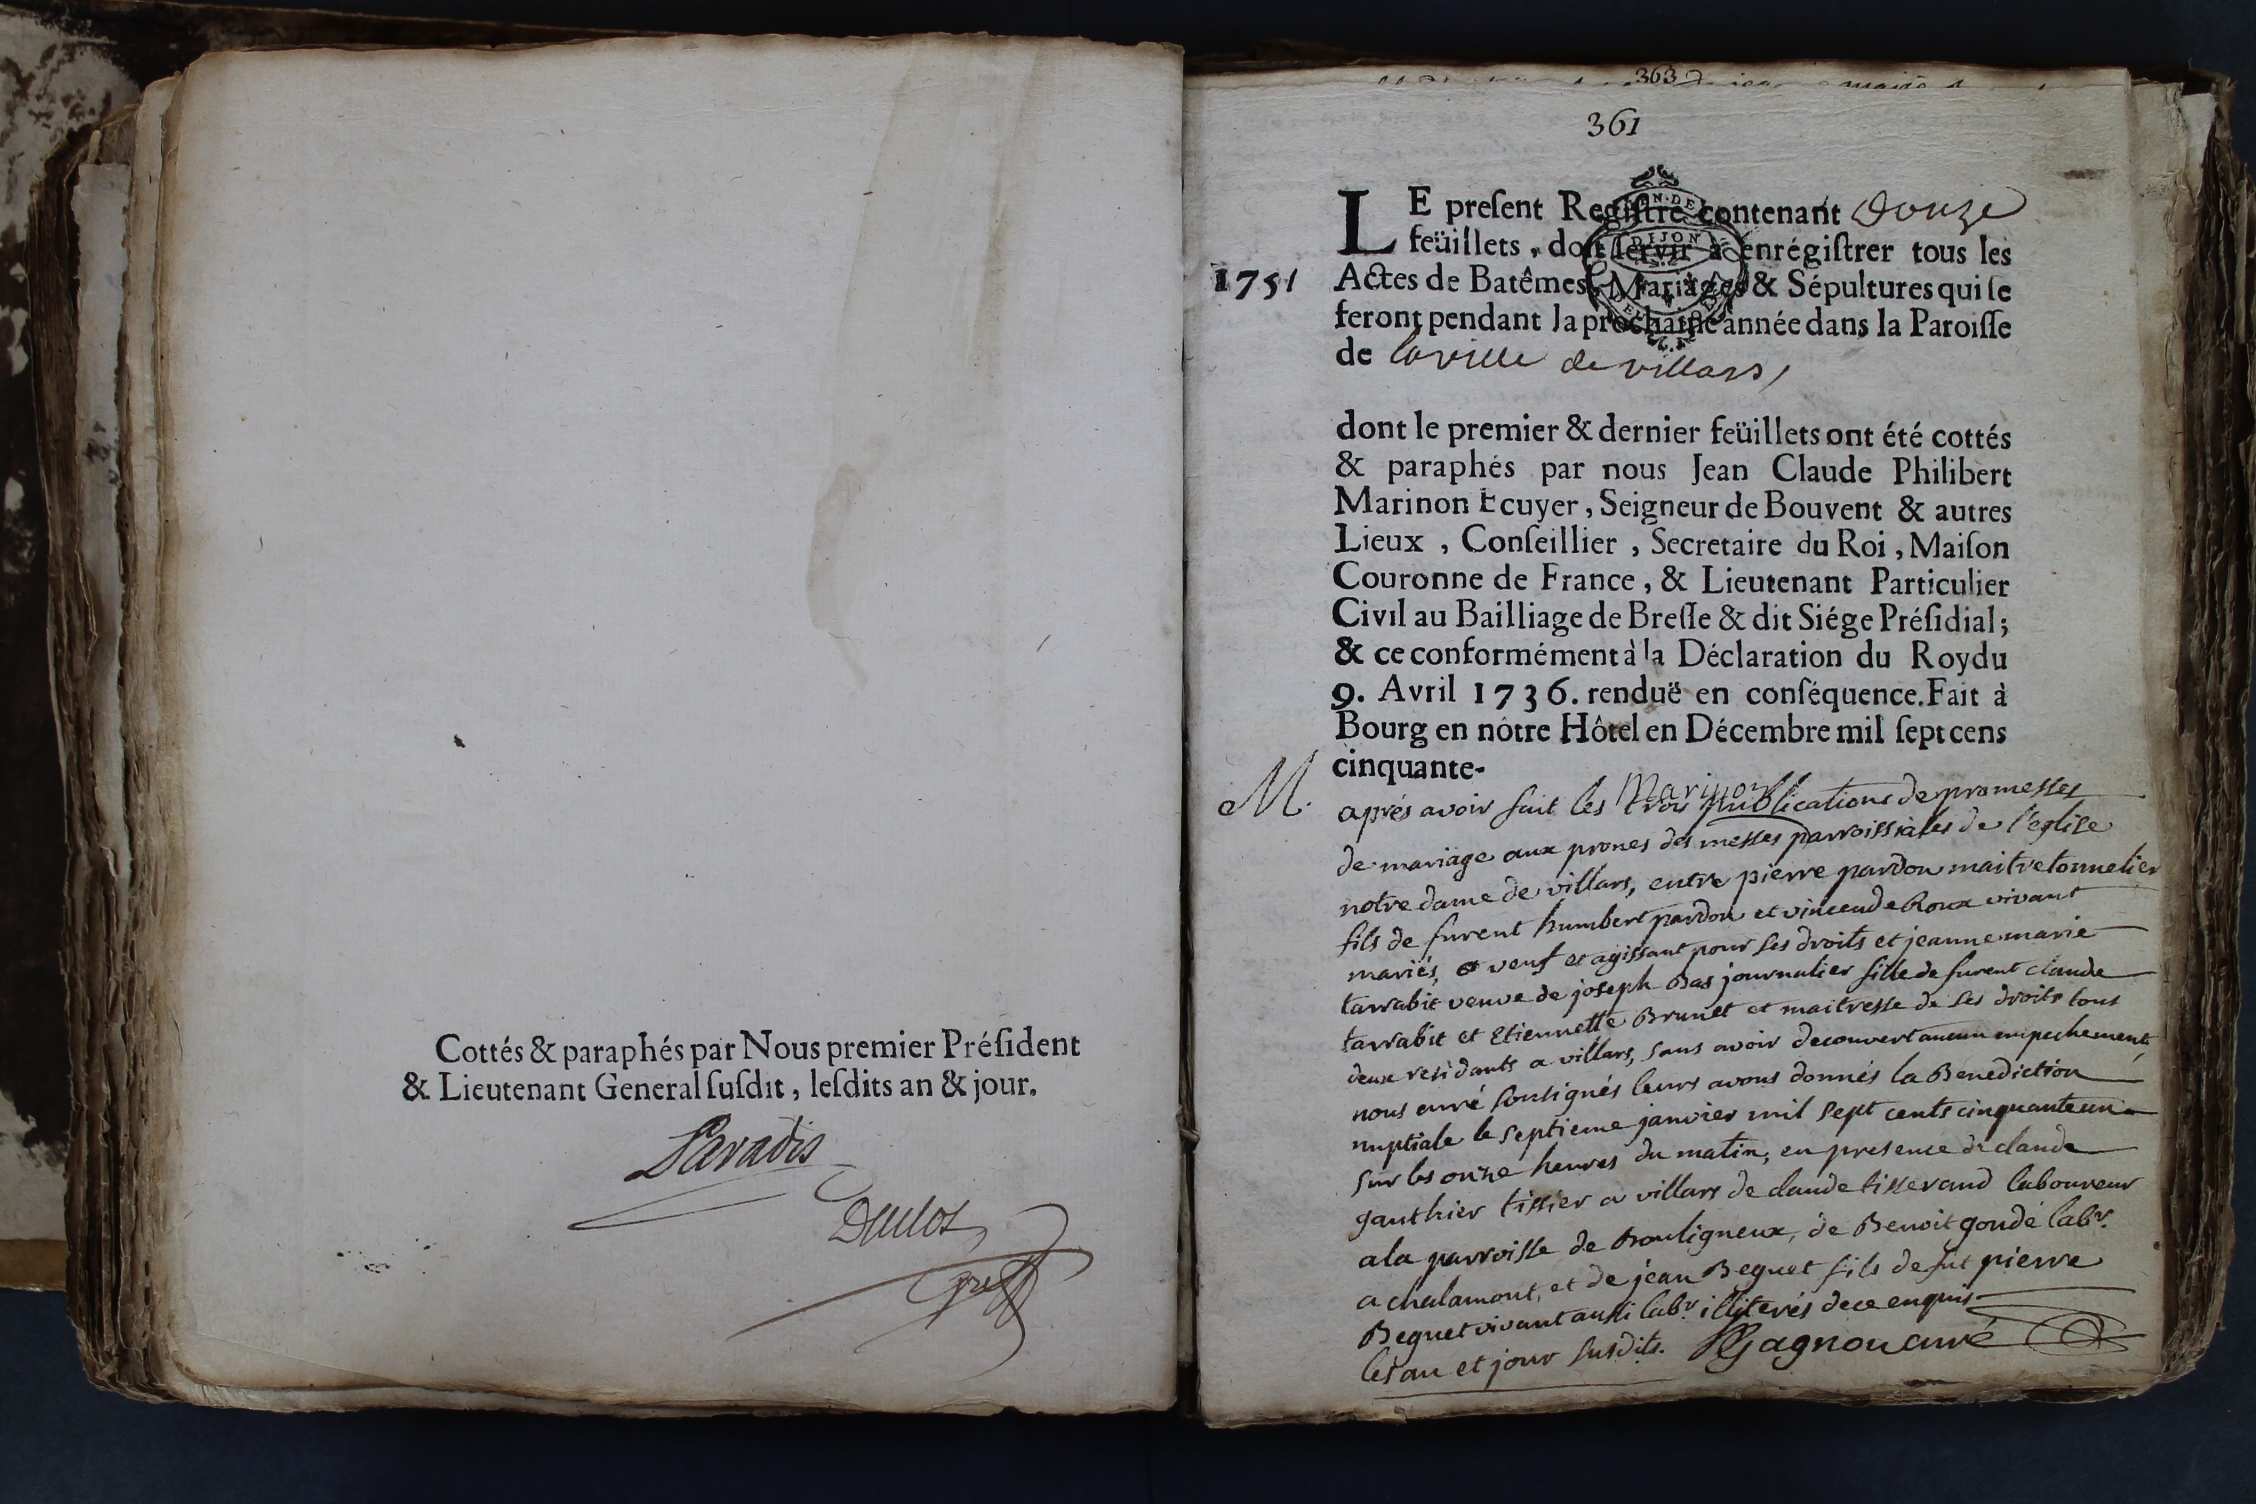 Cottés & paraphés par Nous premier Préſident
& Lieutenant General ſuſdit, leſdits an & jour.
Paradis
Duclos
363
361
LE preſent Regiſtre contenant Douze
feüillets, doit ſervir à enrégiſtrer tous les
1751
Actes de Batêmes, Mariages & Sépultures qui ſe
feront pendant la prochaine année dans la Paroiſſe
de la ville de villars,
DIJON
dont le premier & dernier feüillets ont été cottés
& paraphés par nous Jean Claude Philibert
Marinon Ecuyer, Seigneur de Bouvent & autres
Lieux, Conſeillier, Secretaire du Roi, Maiſon
Couronne de France, & Lieutenant Particulier
Civil au Bailliage de Breſſe & dit Siége Préſidial;
& ce conformément à la Déclaration du Roy du
9. Avril 1736. renduë en conſéquence. Fait à
Bourg en nôtre Hôtel en Décembre mil ſept cens
cinquante-
Marinon
M.
aprés avoir fait les trois publications de promesses
de mariage aux prones des messes parroissiales de l'eglise
notre dame de villars, entre pierre pardon maitre tonnelier
fils de furent humbert pardon et vincende Roux vivant
mariés, et veuf et agissant pour ses droits et jeanne marie
tarrabit veuve de joseph Bas journalier fille de furent claude
tarrabit et Etiennette Brunet et maitresse de ses droits tous
deux residants a villars, sans avoir decouvert aucun empechement,
nous curé sousignés leurs avons donnés la Benediction
nuptiale le septieme janvier mil sept cents cinquante un
sur les onze heures du matin, en presence de claude
gauthier tissier a villars de claude tisserand laboureur
a la parroisse de Bouligneux, de Benoit goudé labr.
a chalamont, et de jean Beguet fils de fut pierre
Beguet vivant aussi labr. illiterés de ce enquis
les an et jour susdits. Gagnou curé